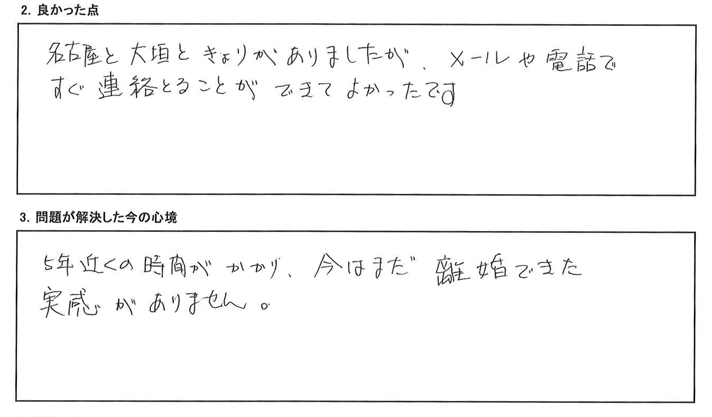 2. 良かった点
名古屋と大垣ときょりがありましたが、メールや電話で
すぐ連絡とることができてよかったです
3. 問題が解決した今の心境
5年近くの時間がかかり、今はまだ離婚できた
実感がありません。